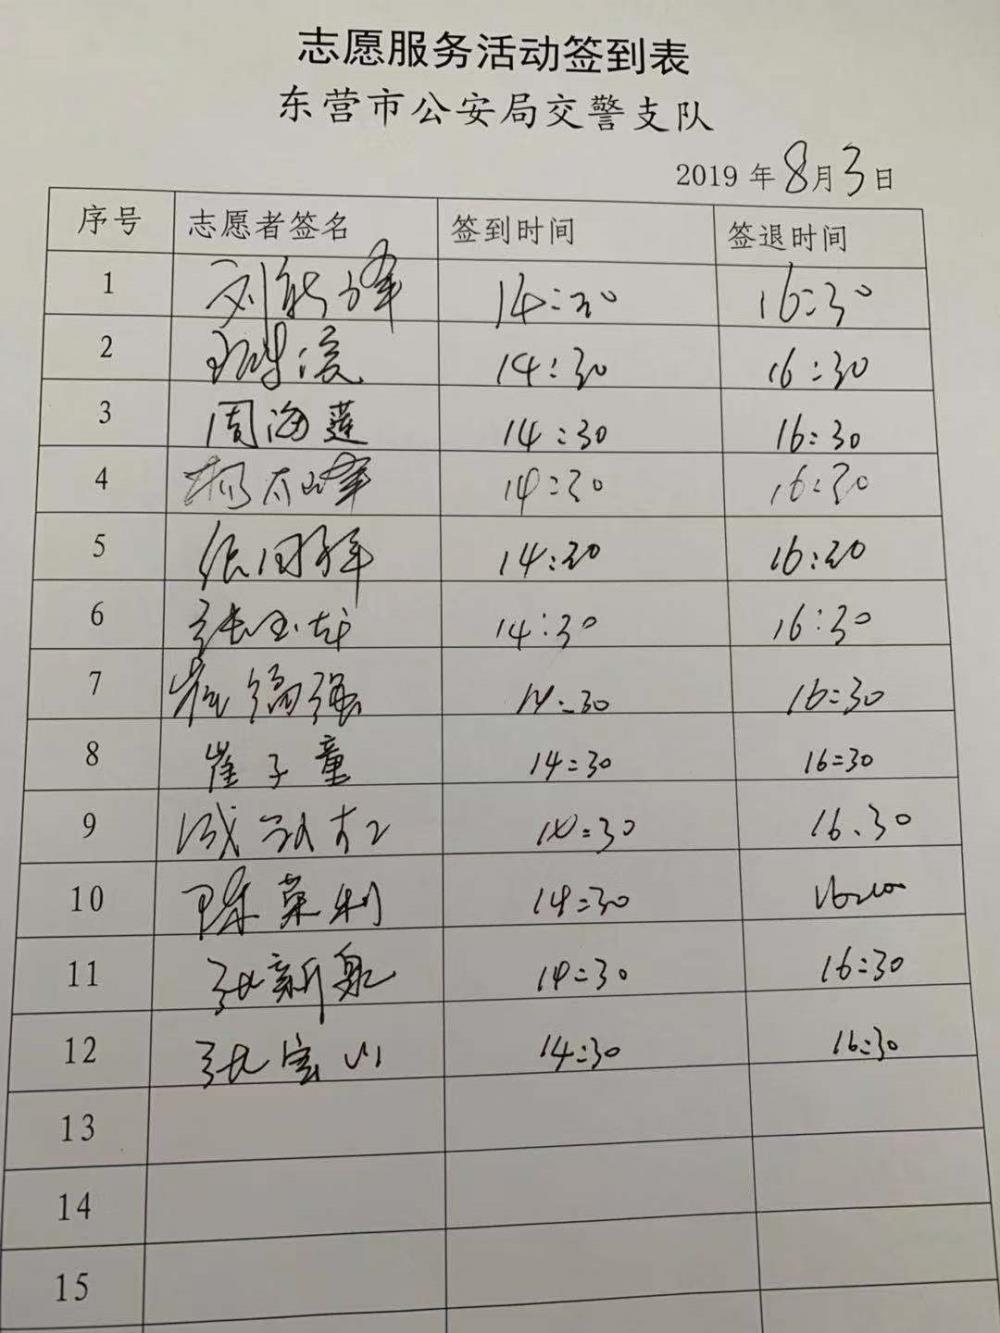 志愿服务活动签到表
东营市公安局交警支队
2019年8月3日
序号 志愿者签名 签到时间 签退时间
1 刘 峰 14:30 16:30
2 14:30 16:30
3 周海莲 14:30 16:30
4 杨太山峰 14:30 16:30
5 张 14:30 16:30
6 张玉 14:30 16:30
7 崔 强 14:30 16:30
8 崔子童 14:30 16:30
9 14:30 16.30
10 陈菜利 14:30
11 张新泉 14:30 16:30
12 张宝山 14:30 16:30
13
14
15